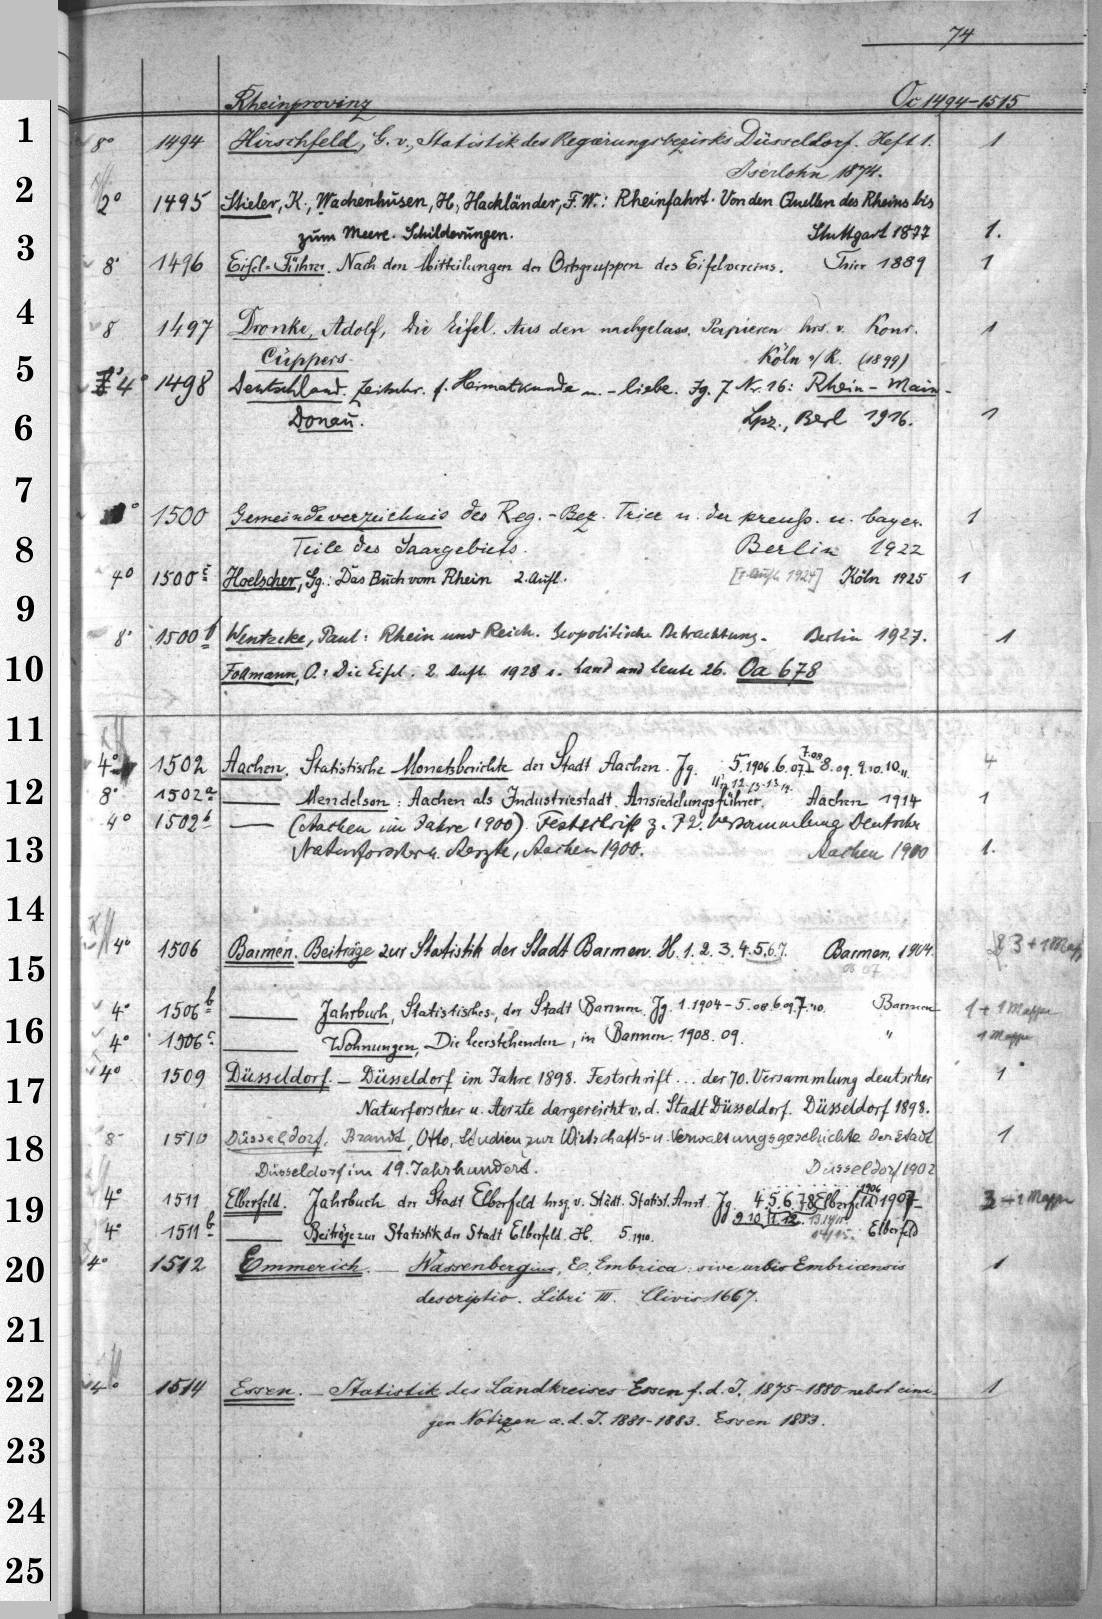 74
Rheinprovinz Oc 1494-1515
1
8° 1494 Hirschfeld, G. v., Statistik des Regierungsbezirks Düsseldorf. Heft 1. 1
Iserlohn 1874.
2
2° 1495 Stieler, K., Wachenhusen, H., Hackländer, F. W.: Rheinfahrt. Von den Quellen des Rheins bis
zum Meere. Schilderungen. Stuttgart 1877 1.
3
8° 1496 Eifel-Führer. Nach den Mitteilungen der Ortsgruppen des Eifelvereins. Trier 1889 1
4
8 1497 Dronke, Adolf, Die Eifel. Aus den nachgelass. Papieren hrs. v. Konr. 1
Cüppers. Köln a/R. (1899)
5
4° 1498 Deutschland. Zeitschr. f. Heimatkunde u. -liebe. Jg. 7 Nr. 16: Rhein-Main-
6
Donau. Lpz., Berl 1916. 1
7
1500 Gemeindeverzeichnis des Reg.-Bez. Trier u. der preuß. u. bayer. 1
8
Teile des Saargebiets. Berlin 1922
4° 1500 e Hoelscher, Gg.: Das Buch vom Rhein 2. Aufl. [1. Aufl. 1924] Köln 1925 1
9
8° 1500 f Wentzcke, Paul: Rhein und Reich. Geopolitische Betrachtung. Berlin 1927. 1
10
Follmann, O.: Die Eifel. 2. Aufl. 1928 s. Land und Leute 26. Oa 678
11
4° 1502 Aachen. Statistische Monatsberichte der Stadt Aachen. Jg. 5.1906.6.07. 7.08 8.09. 9.10.10.11. 4
12
8° 1502 a Mendelson: Aachen als Industriestadt. Ansiedelungsführer. Aachen 1914 1
4° 1502 b (Aachen im Jahre 1900). Festschrift z. 72. Versammlung Deutscher
13
Naturforscher u. Aerzte, Aachen 1900. Aachen 1900 1.
14
4° 1506 Barmen. Beiträge zur Statistik der Stadt Barmen. H. 1. 2. 3. 4. 5. 6. 7. Barmen, 1904. 3 + 1 Mapp
06 07
15
4° 1506 b Jahrbuch, Statistisches, der Stadt Barmen. Jg. 1.1904-5.08.6.09.7.10. Barmen 1 + 1 Mappe
16
4° 1906 c Wohnungen, Die leerstehenden, in Barmen. 1908. 09. " 1 Mappe
4° 1509 Düsseldorf. - Düsseldorf im Jahre 1898. Festschrift... der 70. Versammlung deutscher 1
17
Naturforscher u. Aerzte dargereicht v. d. Stadt Düsseldorf. Düsseldorf 1898.
18
8° 1510 Düsseldorf. Brandt, Otto, Studien zur Wirtschafts- u. Verwaltungsgeschichte der Stadt 1
Düsseldorf im 19. Jahrhundert. Düsseldorf 1902
19
4° 1511 Elberfeld. Jahrbuch der Stadt Elberfeld hrsg. v. Städt. Statist. Amt Jg. 4. 5. 6. 7. 8 Elberfeld 1906 1907- 3 + 1 Mappe
9. 10. 11. 12.
4° 1511 b Beiträge zur Statistik der Stadt Elberfeld. H. 5.1910. Elberfeld
20
4° 1512 Emmerich. - Wassenbergius, E., Embrica: sive urbis Embricensis 1
descriptio. Libri III. Clivis 1667.
21
22
4° 1514 Essen. - Statistik des Landkreises Essen f. d. J. 1875-1880 nebst eini- 1
gen Notizen a. d. J. 1881-1883. Essen 1883.
23
24
25